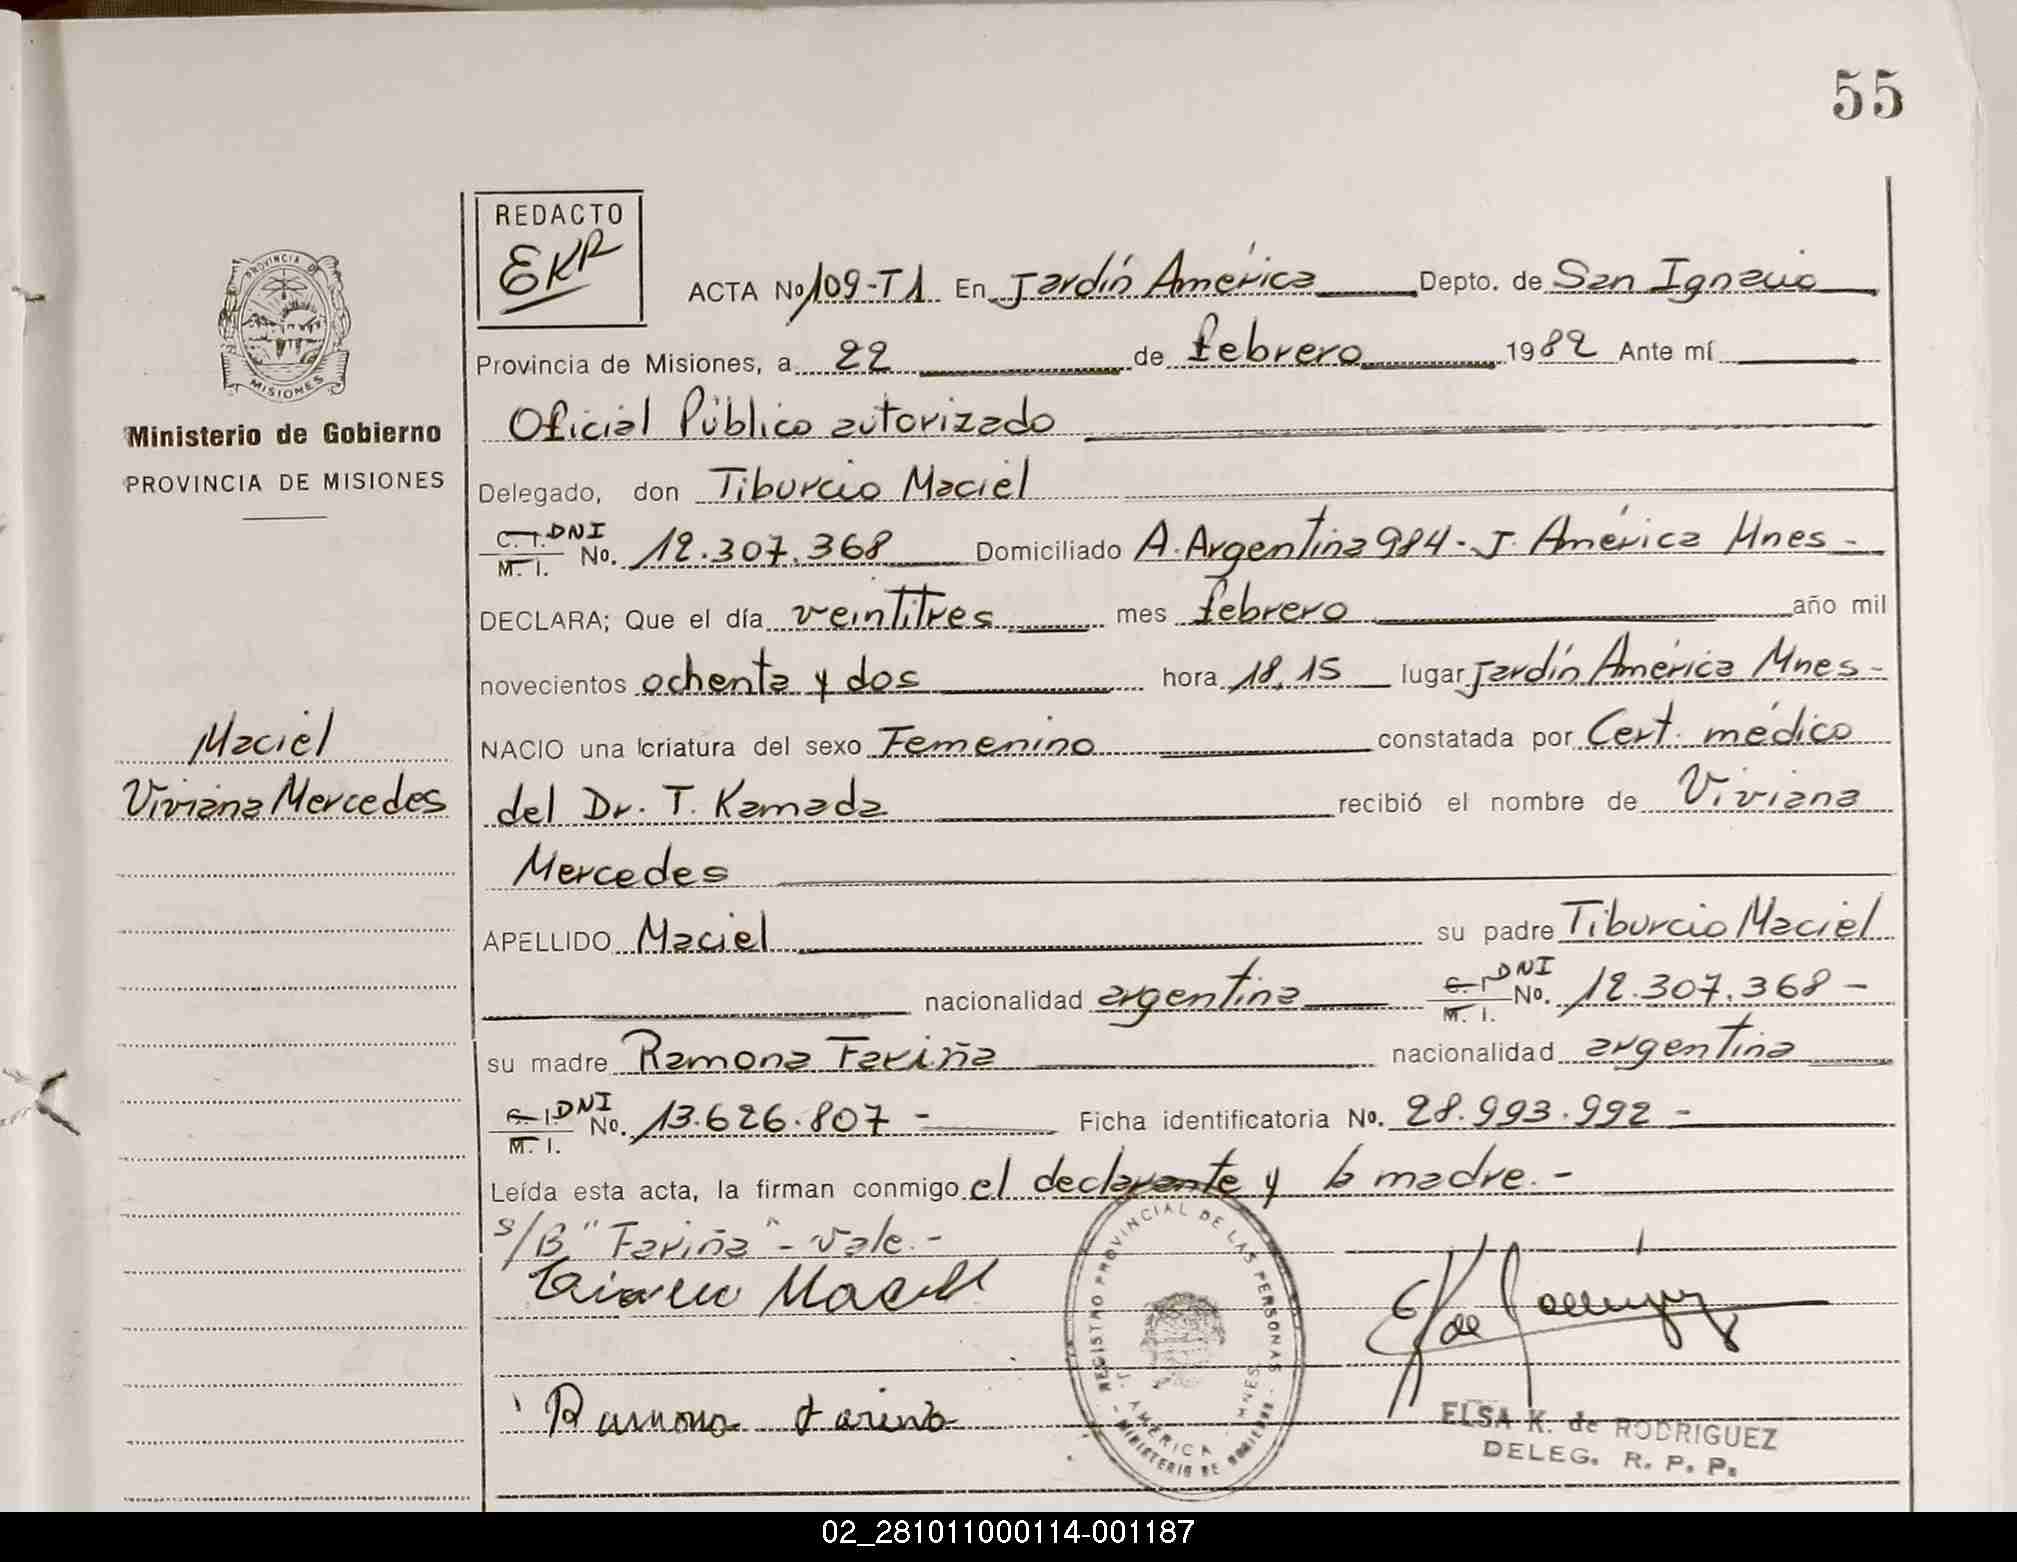 55
REDACTO
EKR
ACTA Nº 109-T1 En Jardín América Depto. de San Ignacio
Provincia de Misiones, a 22 de febrero 1982 Ante mí
Oficial Público autorizado
Delegado, don Tiburcio Maciel
C. I. DNI M. I. No. 12.307.368 Domiciliado A. Argentina 984 - J. América Mnes -
DECLARA; Que el día veintitres mes febrero año mil
novecientos ochenta y dos hora 18,15 lugar Jardín América Mnes -
NACIO una criatura del sexo Femenino constatada por Cert. médico
del Dr. T. Kamada recibió el nombre de Viviana
Mercedes
APELLIDO Maciel su padre Tiburcio Maciel
nacionalidad argentina C. I. DNI M. I. No. 12.307.368 -
su madre Ramona Fariña nacionalidad argentina
C. I. DNI M. I. No. 13.626.807 - Ficha identificatoria No. 28.993.992 -
Leída esta acta, la firman conmigo el declarante y la madre. -
s/B "Fariña" - Vale. -
Ramona Farina
ELSA K. de RODRIGUEZ
DELEG. R. P. P.
REGISTRO PROVINCIAL DE LAS PERSONAS
J. AMÉRICA - MNES.
- MINISTERIO DE GOBIERNO -
PROVINCIA DE
MISIONES
Ministerio de Gobierno
PROVINCIA DE MISIONES
Maciel
Viviana Mercedes
02_281011000114-001187